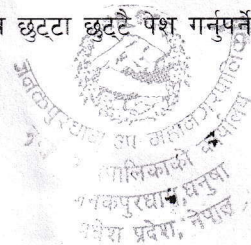 छुट्टा छुट्टै पेश गर्नुपर्ने
जनकपुरधाम उप-महानगरपालिका
पालिकाको
जनकपुरधाम, धनुषा
प्रदेश, नेपाल